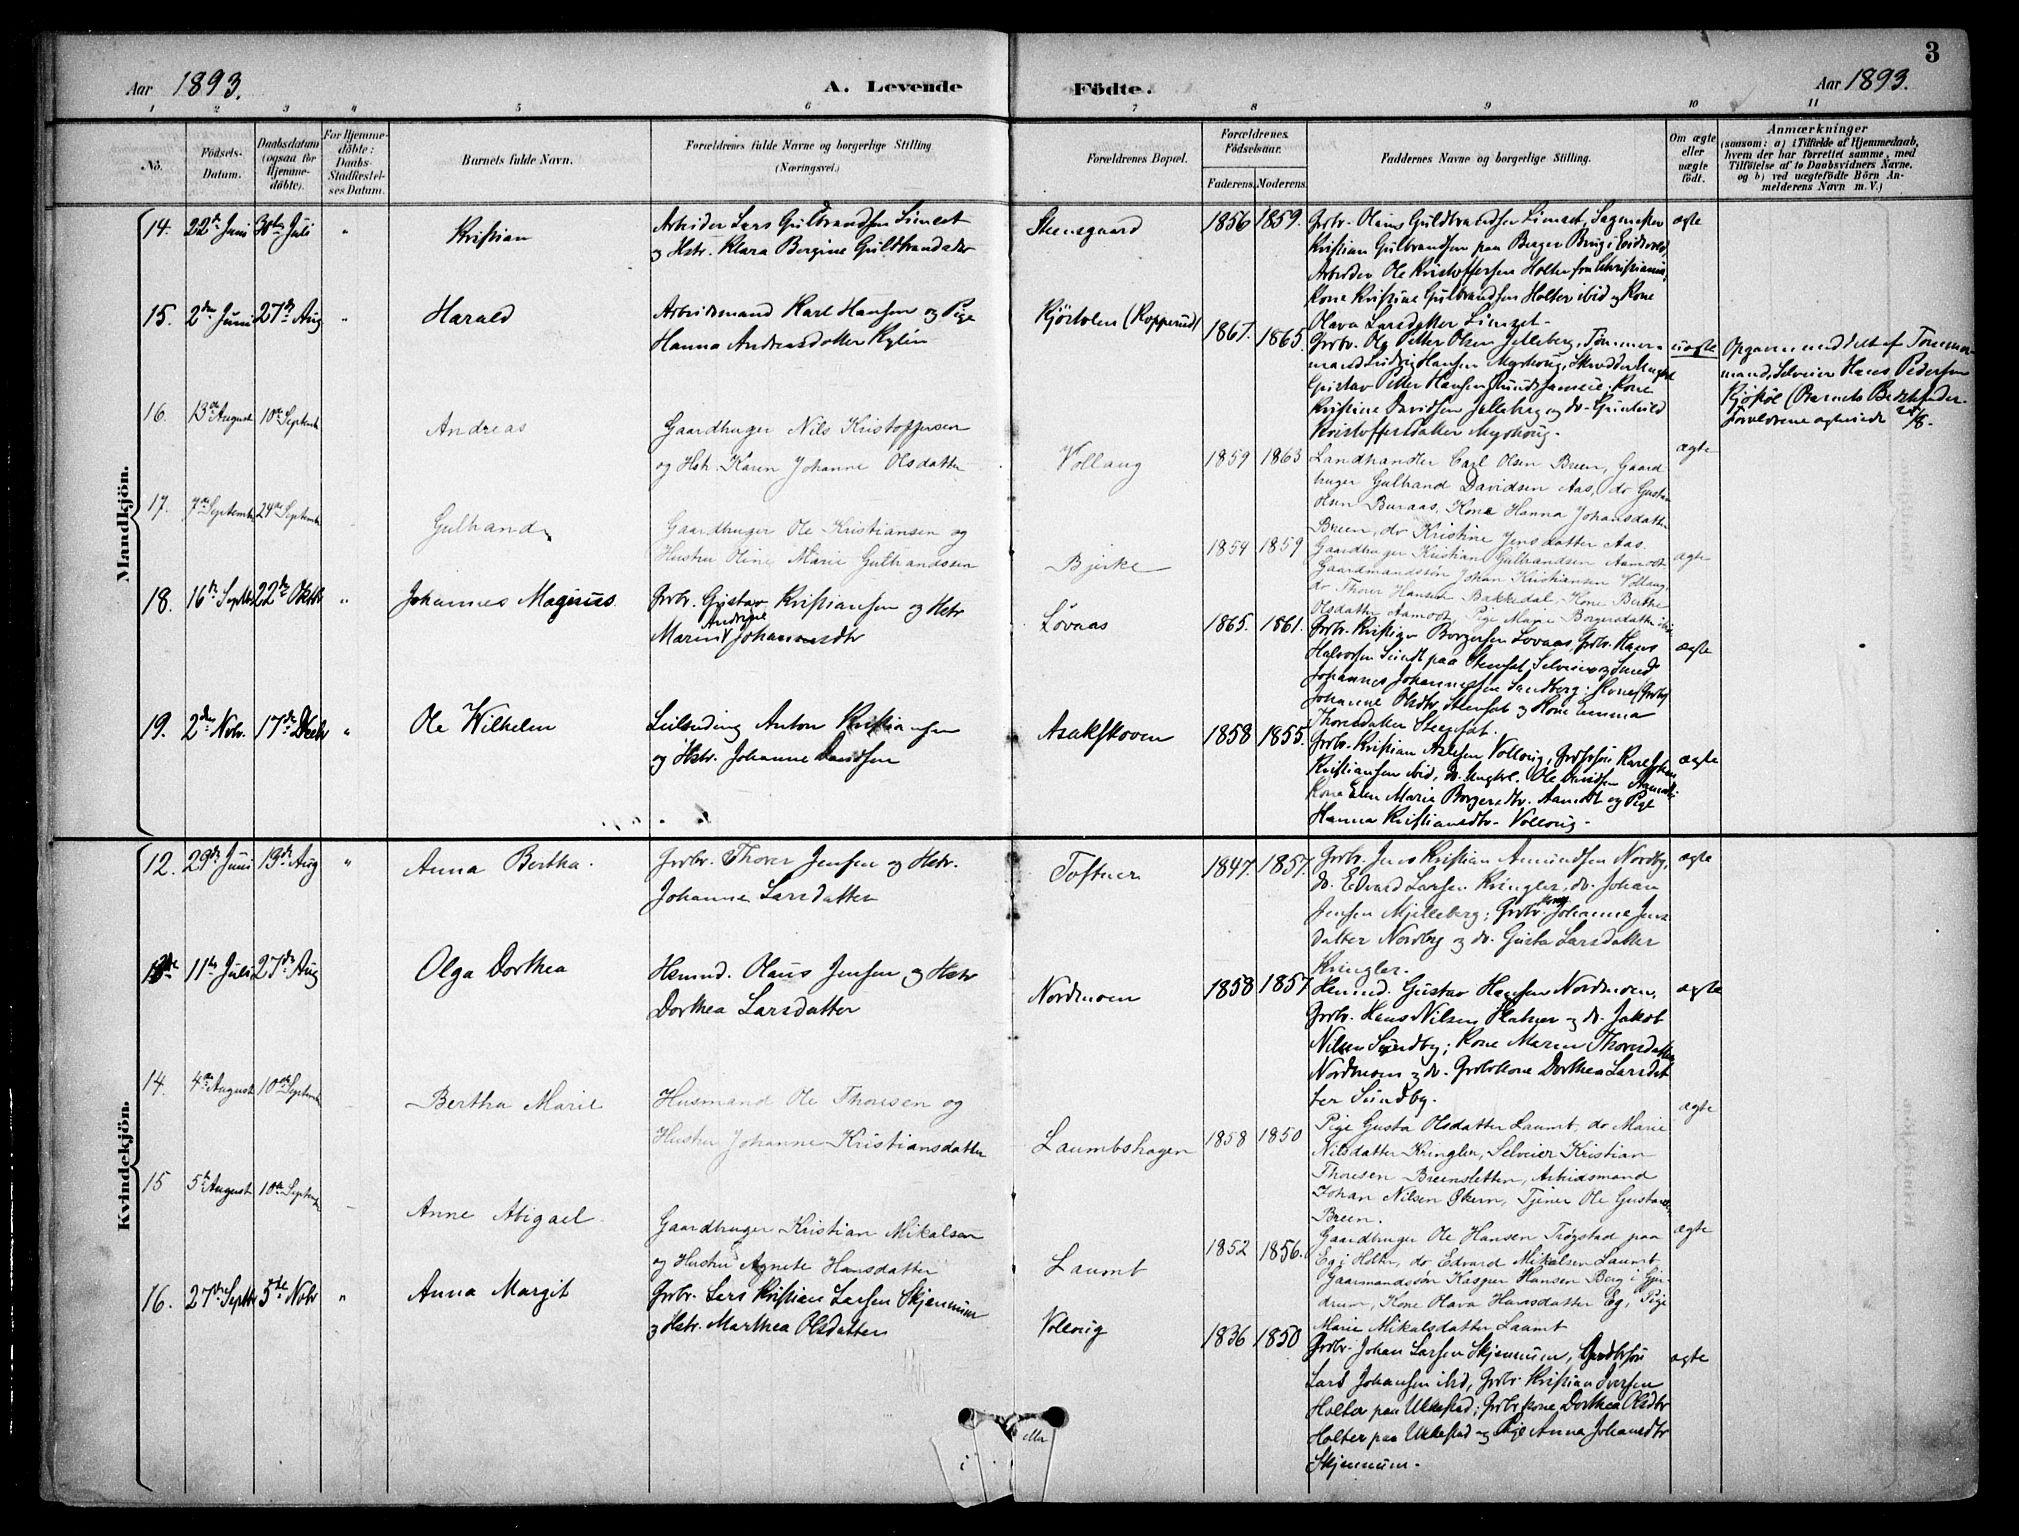 3
Aar 1893. A. Levende Födte. Aar 1893.
1 2 3 4 5 6 7 8 9 10 11
No. Födsels-Datum. Daabsdatum (ogsaa for Hjemmedöbte). For Hjemmedöbte: Daabs-Stadfæstelses Datum. Barnets fulde Navn. Forældrenes fulde Navne og borgerlige Stilling (Næringsvei.) Forældrenes Bopæl. Forældrenes Födselsaar. Faderens. Moderens. Faddernes Navne og borgerlige Stilling. Om ægte eller uægte födt. Anmærkninger (saasom: a) i Tilfælde af Hjemmedaab, hvem der har forrettet samme, med Tilföielse af to Daabsvidners Navne. og b) ved uægtefödte Börn Anmelderens Navn m. V.)
Mandkjön.
14. 22de Juni 30te Juli " Kristian
Arbeider Lars Gulbrandsen Limset
og Hstr. Klara Bergine Guldbrandsdtr
Steensgaard 1856 1859.
Grbr. Olaus Guldbrandsen Limset, Sagmester
Kristian Gulbrandsen paa Berger Brug i Eidsvold,
Arbeider Ole Kristoffersen Holter fra Christiania,
Kone Kristine Gulbrandsen Holter ibid og Kone
Olava Larsdatter Limset.
ægte
15. 2den Juni 27de Aug " Harald
Arbeidsmand Karl Hansen og Pige
Hanna Andreasdatter Kylin
Kjörtolen (Kopperud) 1867. 1865.
Grbr. Ole Petter Olsen Jelleberg, Tömmer-
mand Ludvig Hansen Myrhoug, Skredder Ungkl
Gustav Petter Hansen ; Kone
Kristine Davidsen Jelleberg og do. Gunhild
Kristoffersdatter Myrhoug.
uægte
Opgaven meddelt af Tömmer-
mand, Selveier Hans Pedersen
Kjöstöl (Barnets
Forældrene ægteviede
16. 13de August 10de Septemb Andreas
Gaardbruger Nils Kristoffersen
og Hstr. Karen Johanne Olsdatter
Vollaug 1859 1863
Landhandler Carl Olsen Breen, Gaard
bruger Gulbrand Davidsen Aas, do Gustav
Olsen Buraas, Kone Hanna Johansdatter
Breen, do Kristine Jensdatter Aas.
ægte
17. 7de Septemb 24de Septemb Gulbrand
Gaardbruger Ole Kristiansen og
Hustru Oline Marie Gulbrandssen
Bjerke 1854 1859
Gaardbruger Kristian Gulbrandsen Aamodt
Gaardmandssön Johan Kristiansen Vollaug,
do Thorer Hansen Bakkedal, Kone Berthe
Olsdatter Aamodt, Pige Marie Borgersdatter ibid
ægte
18. 16de Septbr 22de Oktbr " Johannes Magnus.
Grbr. Gustav Kristiansen og Hstr
Andrine
Maren Johannesdtr
Lövaas 1865. 1861.
Grbr. Kristian Borgersen Lovaas, Grbr. Hans
Halvorsen Sundt paa Stensat, Selveier og Smed
Johannes Johannessen Sandberg; Kone Grbr
Johanne Olsdtr. Steensat og Kone Emma
Thoresdatter Steensat.
ægte
19. 2den Nobr. 17de Decbr " Ole Wilhelm
Leilending Anton Kristiansen
og Hstr. Johanne Davidsen
Asakskoven 1858 1855.
Grbr. Kristian Axelsen Vollaug, Grbrsön Karl Johan
Kristiansen ibid, do. Ungkl. Ole Davidsen Aamodt
Kone Elen Marie Borgersdtr. Aamodt og Pige
Hanna Kristiansdtr. Vollaug.
ægte
Kvindekjön.
12. 29de Juni 19de Aug " Anna Bertha.
Grbr. Thorer Jensen og Hstr.
Johanne Larsdatter
Toftner 1847. 1857.
Grbr. Jens Kristian Amundsen Nordby,
do. Edvard Larsen Kringler, do. Johan
Jensen Mjelleberg; Grbr. Kone Johanne Jens
datter Nordby og do. Gusta Larsdatter
Kringler.
ægte
13de 11te Juli 27de Aug Olga Dorthea
Hsmnd. Olaus Jensen og Hstr
Dorthea Larsdatter
Nordmoen 1858 1857
Hsmnd. Gustav Hansen Nordmoen,
Grbr. Hans Nilsen Platner og do. Jakob
Nilsen Sundby; Kone Maren Thoresdatter
Nordmoen og do. Grbrkone Dorthea Larsdat
ter Sundby.
ægte
14. 4de August 10de Septemb Bertha Marie
Husmand Ole Thoresen og
Hustru Johanne Kristiansdatter
Laumbshagen 1858 1850
Pige Gusta Olsdatter Laumt, do Marie
Nilsdatter Kringler, Selveier Kristian
Thoresen Breensletten, Arbeidsmand
Johan Nilsen Økern, Tjener Ole Gustavsen
Breen.
ægte
15 5te August 10de Septemb Anne Abigael.
Gaardbruger Kristian Mikalsen
og Hustru Agnete Hansdatter
Laumt 1852 1856.
Gaardbruger Ole Hansen Trögstad paa
Eg i Holter, do Edvard Mikalsen Laumt
Gaarmandssön Kasper Hansen Berg i Gjer
drum, Kone Olava Hansdatter Eg, Pige
Marie Mikalsdatter Laumt
ægte
16. 27de Septbr 5te Nobr " Anna Margit
Grbr. Lars Kristian Larsen Skjennum
og Hstr. Marthea Olsdatter
Vollaug 1836 1850
Grbr. Johan Larsen Skjennum, Grdbrsön
Lars Johansen ibid, Grbr. Kristian Iversen
Holter paa Ukkestad; Grbrkone Dorthea Olsdtr
Holter paa Ukkestad og Pige Anna Johansdtr
Skjennum.
ægte